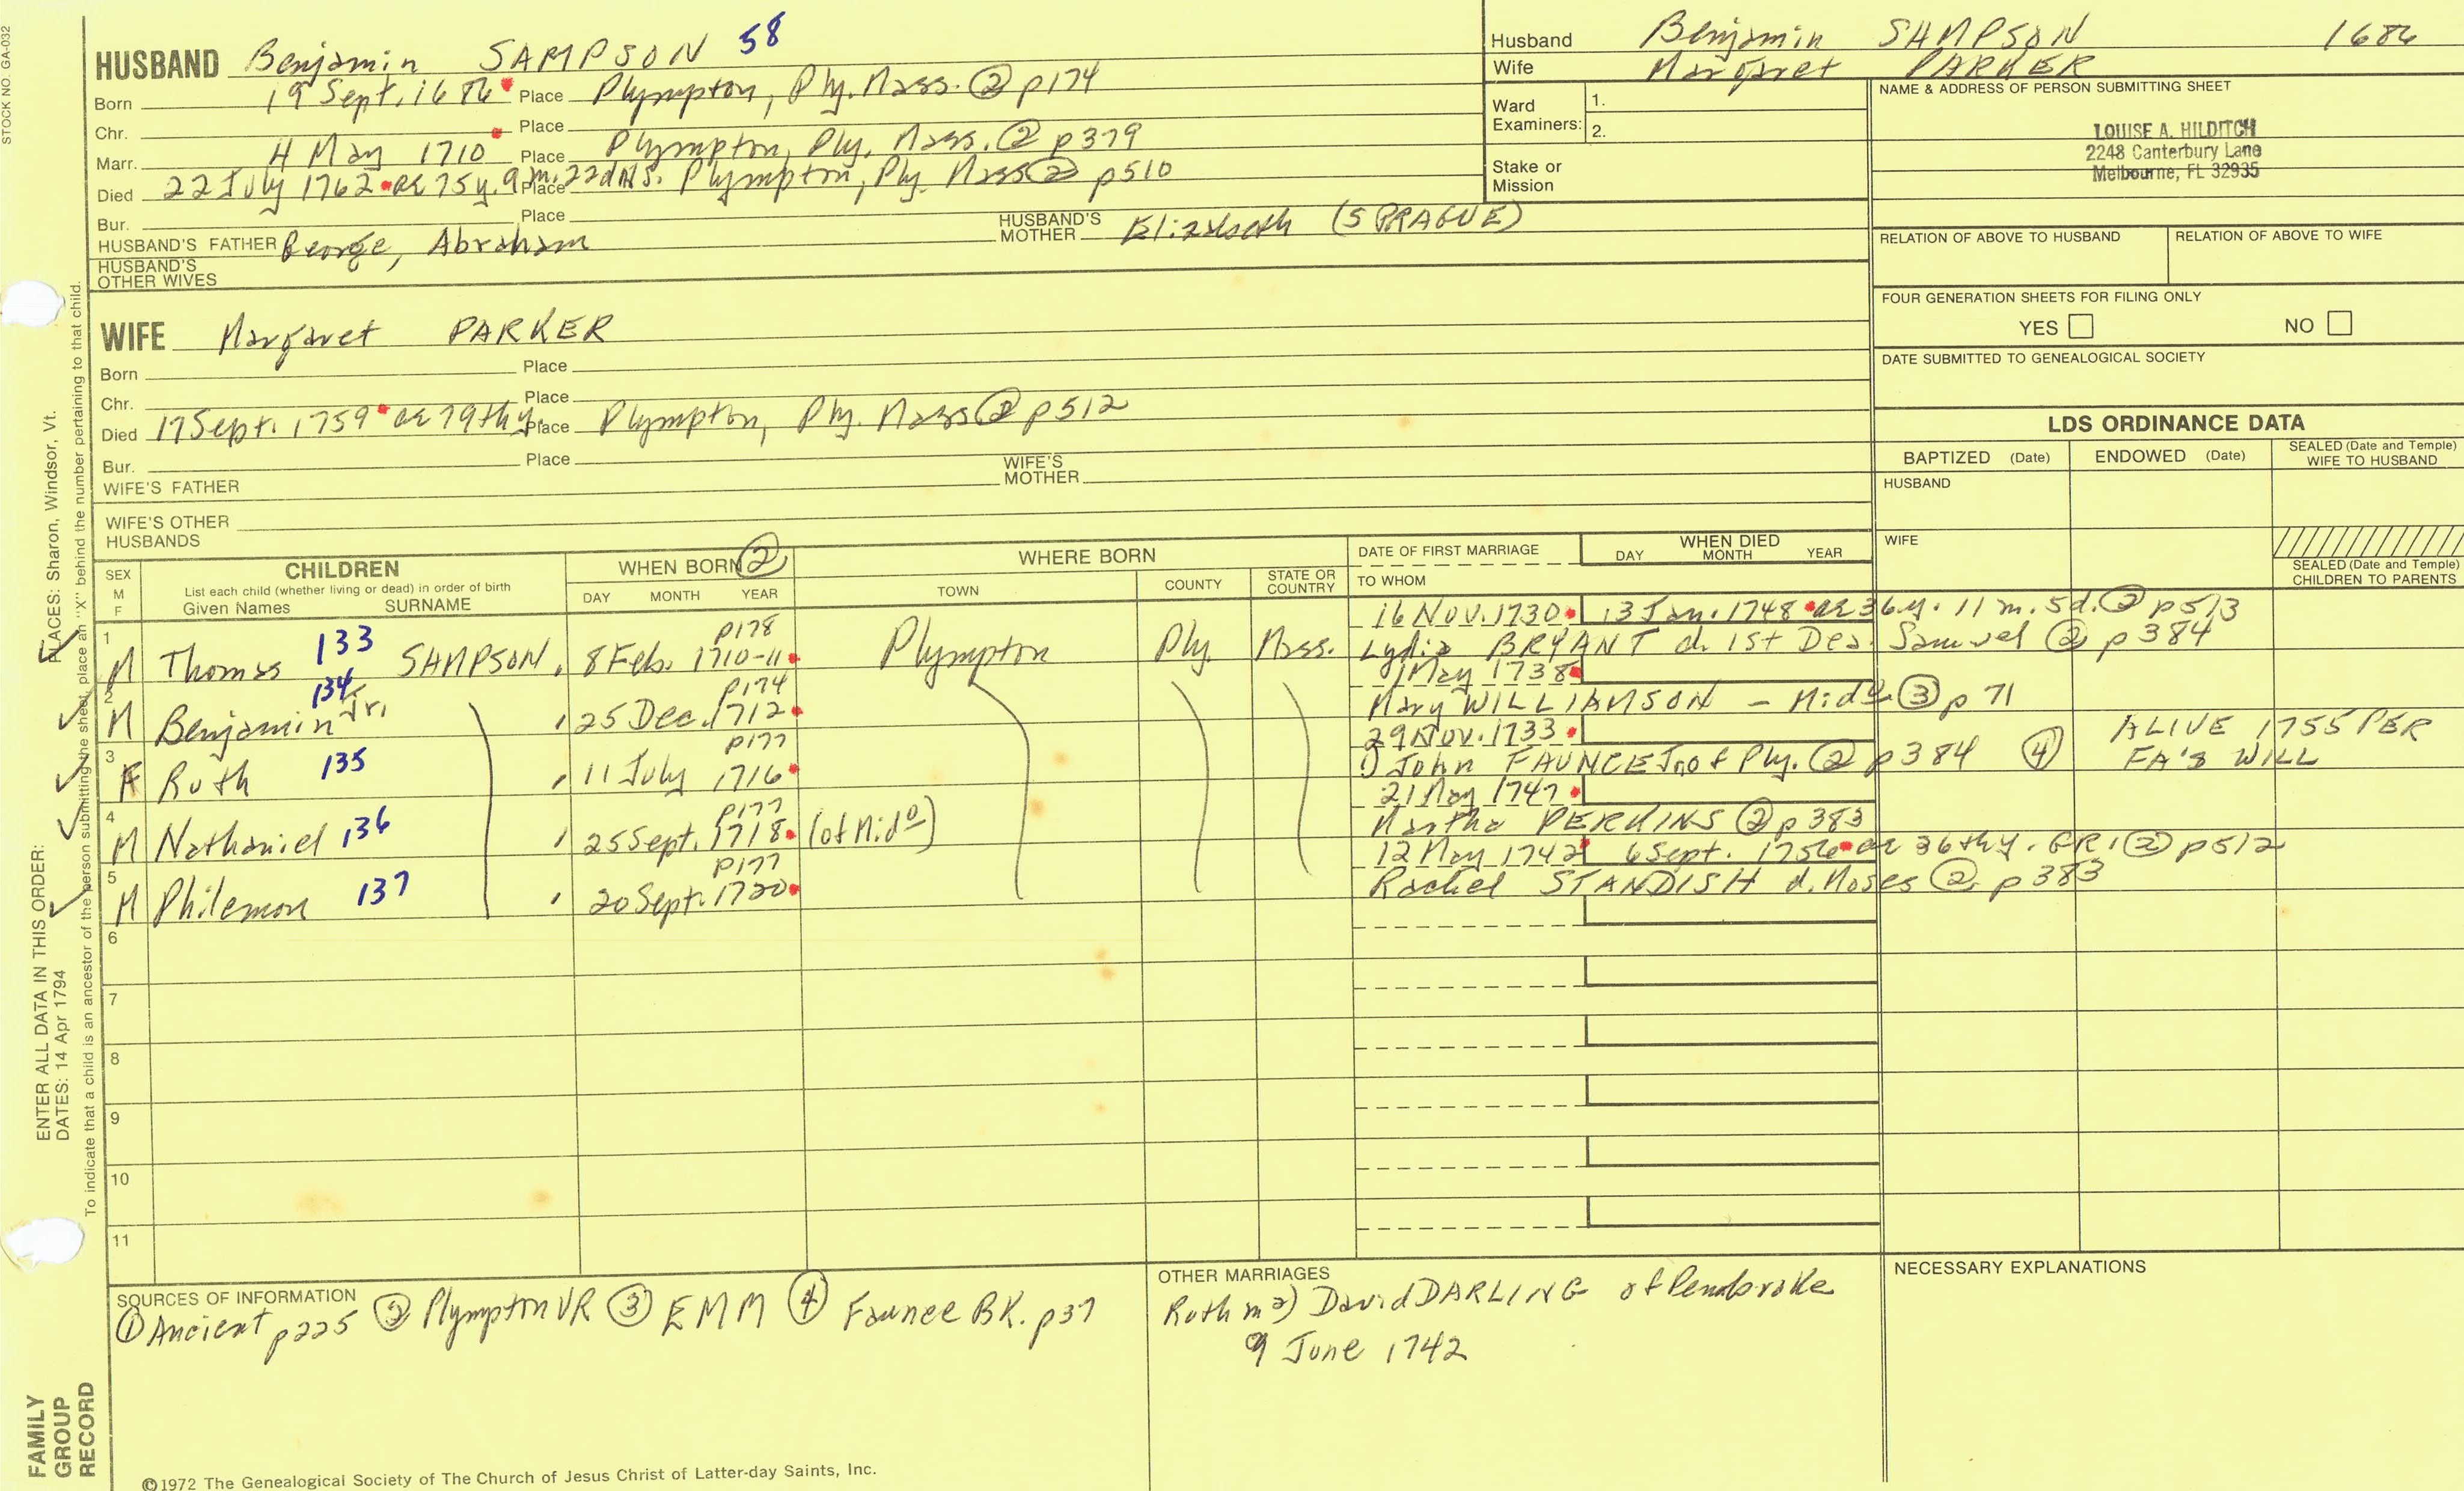 STOCK NO. GA-032
HUSBAND Benjamin SAMPSON 58
Born 19 Sept. 1686 Place Plympton, Ply. Mass. ② p174
Chr. Place
Marr. 4 May 1710 Place Plympton, Ply. Mass. ② p379
Died 22 July 1762 ae 75y. 9m. 22d N.S. Place Plympton, Ply. Mass ② p510
Bur. Place
HUSBAND'S FATHER George, Abraham HUSBAND'S MOTHER Elizabeth (SPRAGUE)
HUSBAND'S OTHER WIVES
Husband Benjamin SAMPSON 1686
Wife Margaret PARKER
Ward Examiners: 1.
2.
Stake or Mission
NAME & ADDRESS OF PERSON SUBMITTING SHEET
LOUISE A. HILDITCH
2248 Canterbury Lane
Melbourne, FL 32935
RELATION OF ABOVE TO HUSBAND RELATION OF ABOVE TO WIFE
FOUR GENERATION SHEETS FOR FILING ONLY
YES NO
DATE SUBMITTED TO GENEALOGICAL SOCIETY
WIFE Margaret PARKER
Born Place
Chr. Place
Died 17 Sept. 1759 ae 79thy. Place Plympton, Ply. Mass ② p512
Bur. Place
WIFE'S FATHER WIFE'S MOTHER
WIFE'S OTHER HUSBANDS
LDS ORDINANCE DATA
BAPTIZED (Date) ENDOWED (Date) SEALED (Date and Temple) WIFE TO HUSBAND
HUSBAND
WIFE
SEALED (Date and Temple) CHILDREN TO PARENTS
SEX M F CHILDREN
List each child (whether living or dead) in order of birth
Given Names SURNAME
WHEN BORN ②
DAY MONTH YEAR
WHERE BORN
TOWN COUNTY STATE OR COUNTRY
DATE OF FIRST MARRIAGE
TO WHOM
WHEN DIED
DAY MONTH YEAR
1 p178 16 Nov. 1730 13 Jan. 1748 ae 36y. 11m. 5d. ② p513
M Thomas 133 SAMPSON 8 Feb. 1710-11 Plympton Ply. Mass. Lydia BRYANT d. 1st Dea. Samuel ② p384
2 p174 1 May 1738
M Benjamin Jr. 134 25 Dec. 1712 Mary WILLIAMSON - Mido ③ p71
3 p177 29 Nov. 1733
F Ruth 135 11 July 1716 1) John FAUNCE Jr. of Ply. ② p384 ④ ALIVE 1755 PER FA'S WILL
4 p177 21 May 1747
M Nathaniel 136 25 Sept. 1718 (of Mido) Martha PERKINS ② p383
5 p177 12 May 1742 6 Sept. 1756 ae 36thy. GR1 ② p512
M Philemon 137 20 Sept. 1720 Rachel STANDISH d. Moses ② p383
6
7
8
9
10
11
SOURCES OF INFORMATION
① Ancient p225 ② Plympton VR ③ EMM ④ Faunce BK. p37
OTHER MARRIAGES
Ruth m 2) David DARLING of Pembroke
9 June 1742
NECESSARY EXPLANATIONS
©1972 The Genealogical Society of The Church of Jesus Christ of Latter-day Saints, Inc.
FAMILY GROUP RECORD
ENTER ALL DATA IN THIS ORDER:
DATES: 14 Apr 1794
PLACES: Sharon, Windsor, Vt.
To indicate that a child is an ancestor of the person submitting the sheet, place an "X" behind the number pertaining to that child.